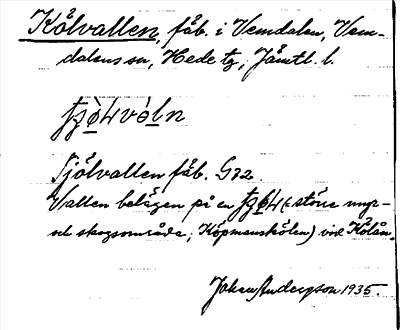 Kölvallen, fäb. i Vemdalen, Vem-
dalens sn, Hede tg, Jämtl. l.
Tjölvallen fäb. G32.
Vallen belägen på en (större myr-
och skogsområde; Köpmanskölen) vid Kölån.
Johan Anderson 1935.